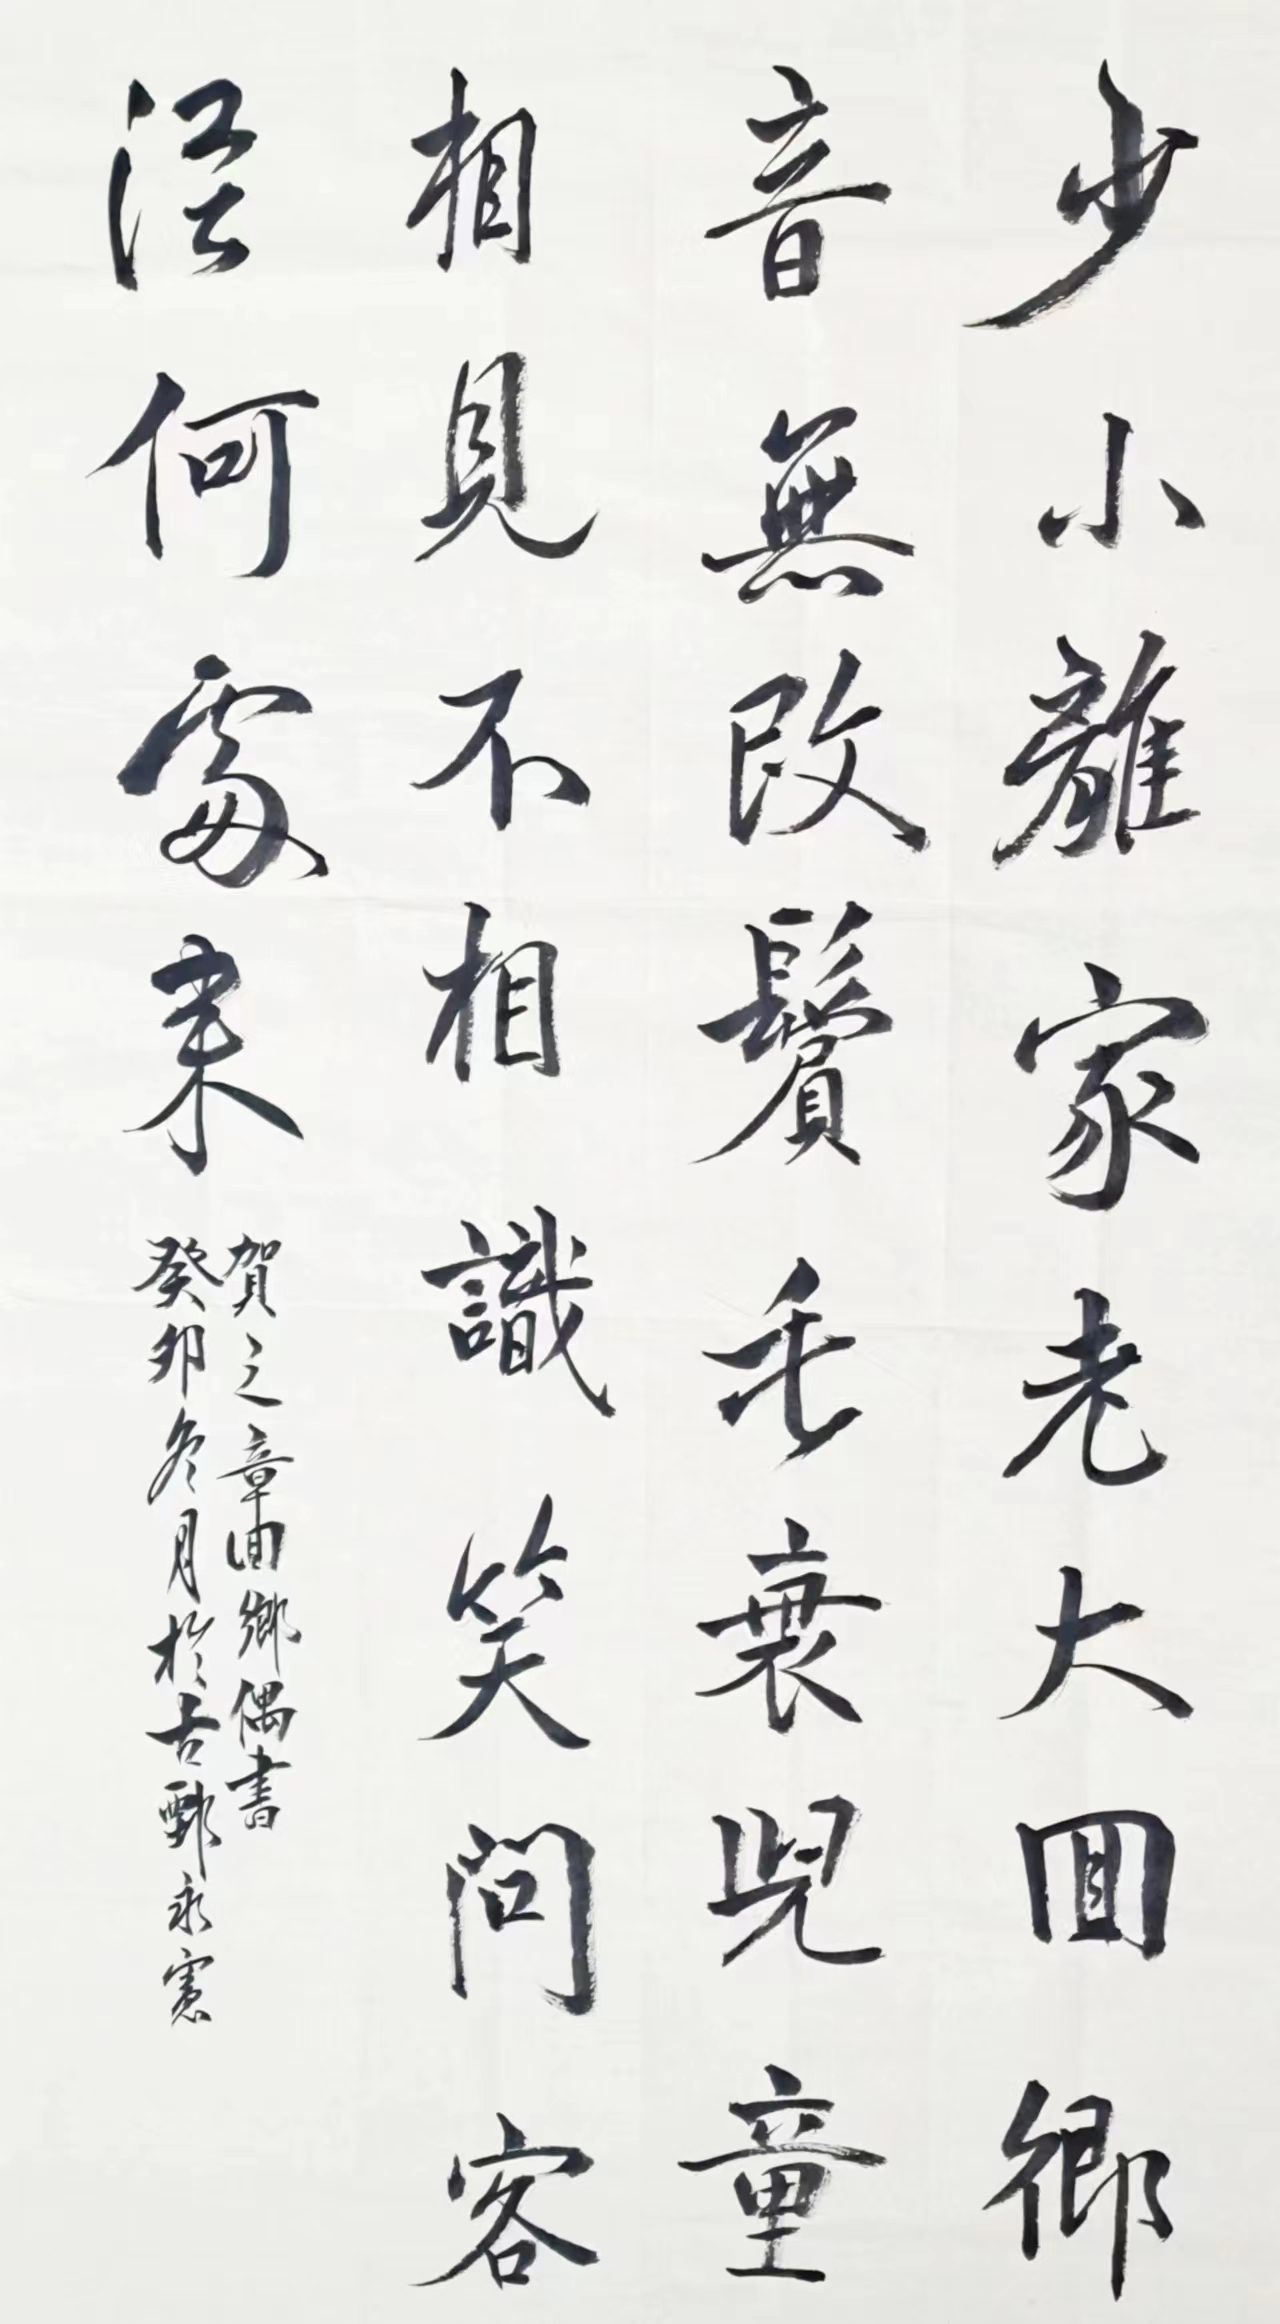 少小離家老大回鄉
音無改鬢毛衰兒童
相見不相識笑問客
從何處來
賀之章回鄉偶書
癸卯冬月於古鄄永憲